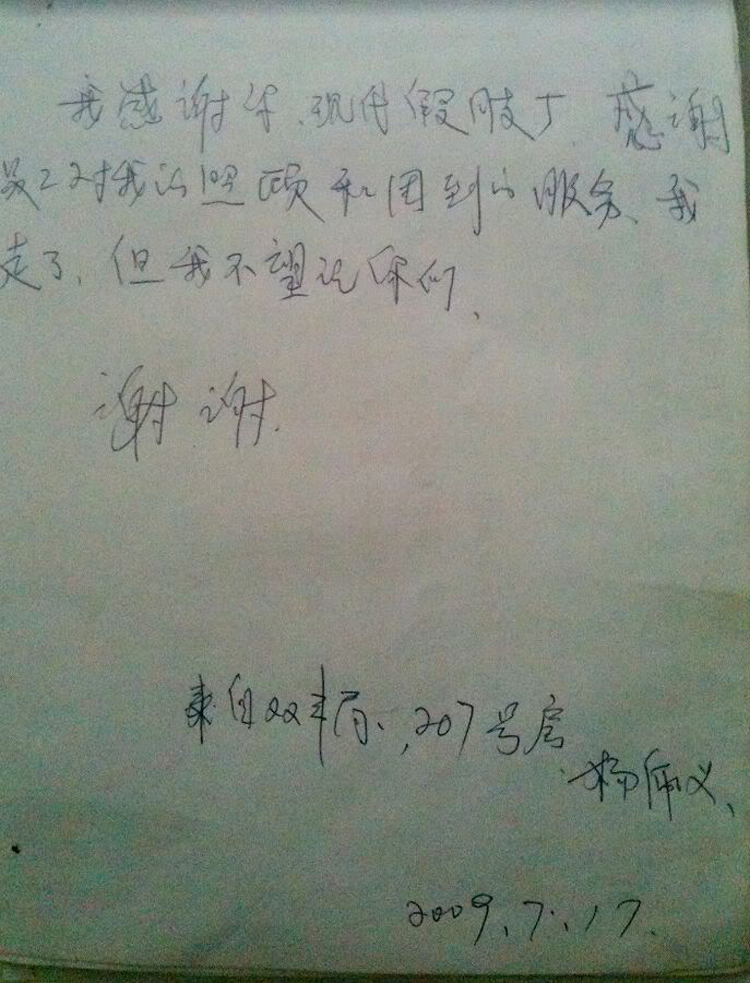 我感谢你、现代假肢厂、感谢
员工对我的照顾和周到的服务、我
走了、但我不望记你们、
谢谢.
来自双丰局.,207号房
杨佩义、
2009.7.17.